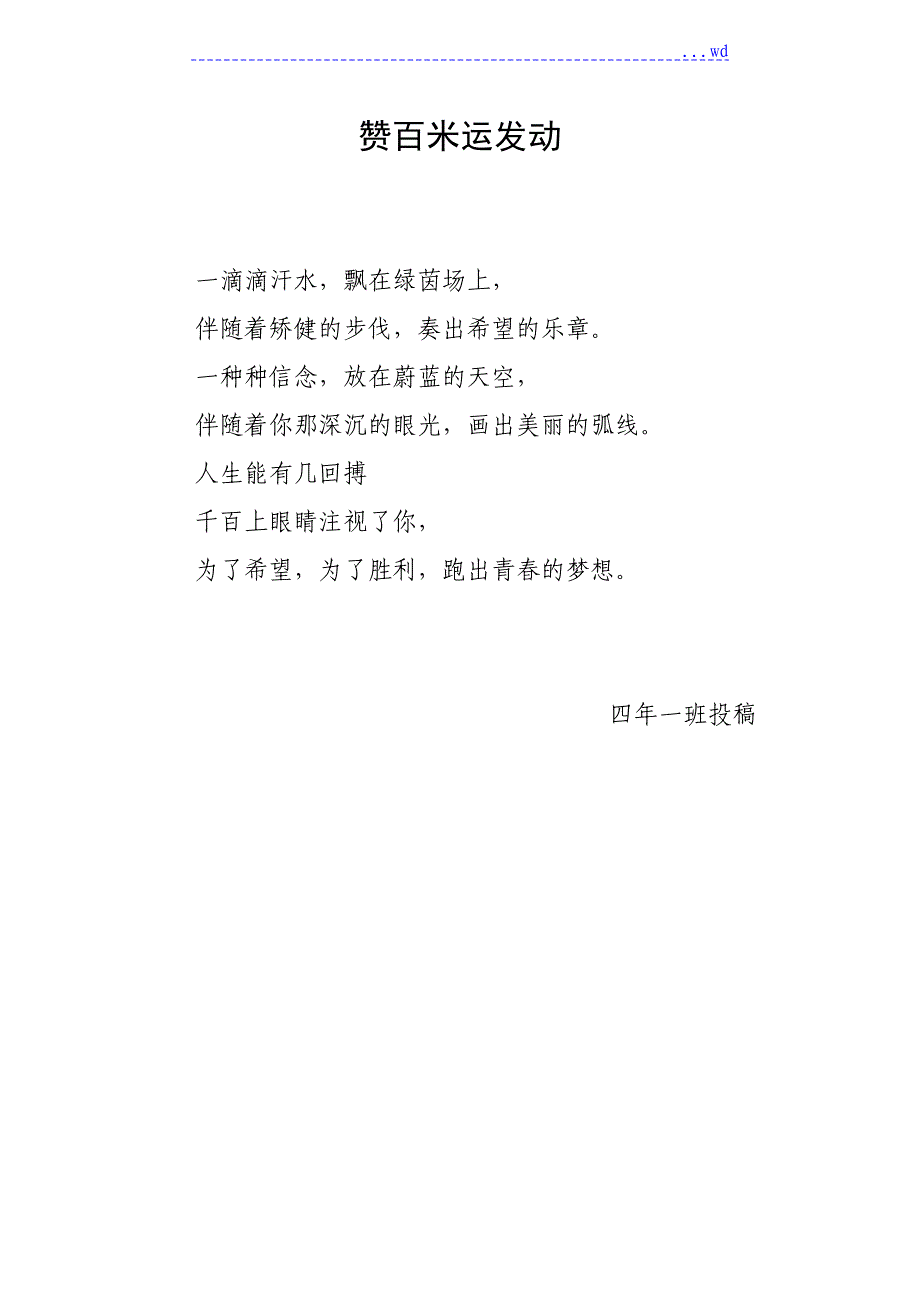 ...wd
赞百米运发动
一滴滴汗水，飘在绿茵场上，
伴随着矫健的步伐，奏出希望的乐章。
一种种信念，放在蔚蓝的天空，
伴随着你那深沉的眼光，画出美丽的弧线。
人生能有几回搏
千百上眼睛注视了你，
为了希望，为了胜利，跑出青春的梦想。
四年一班投稿